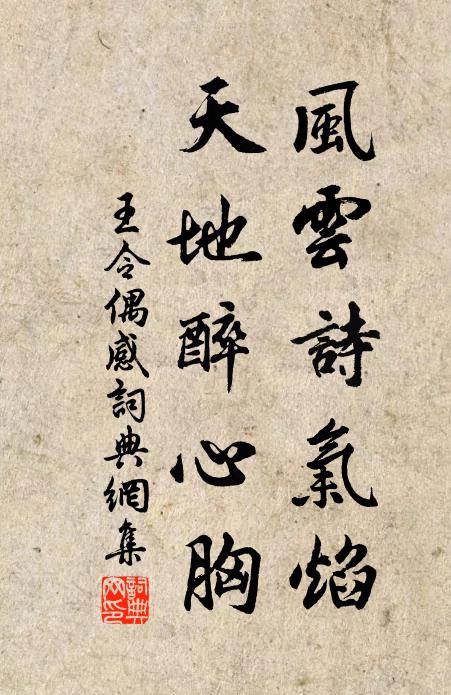 風雲詩氣焰
天地醉心胸
王令偶感詞典網集
詞典
网印